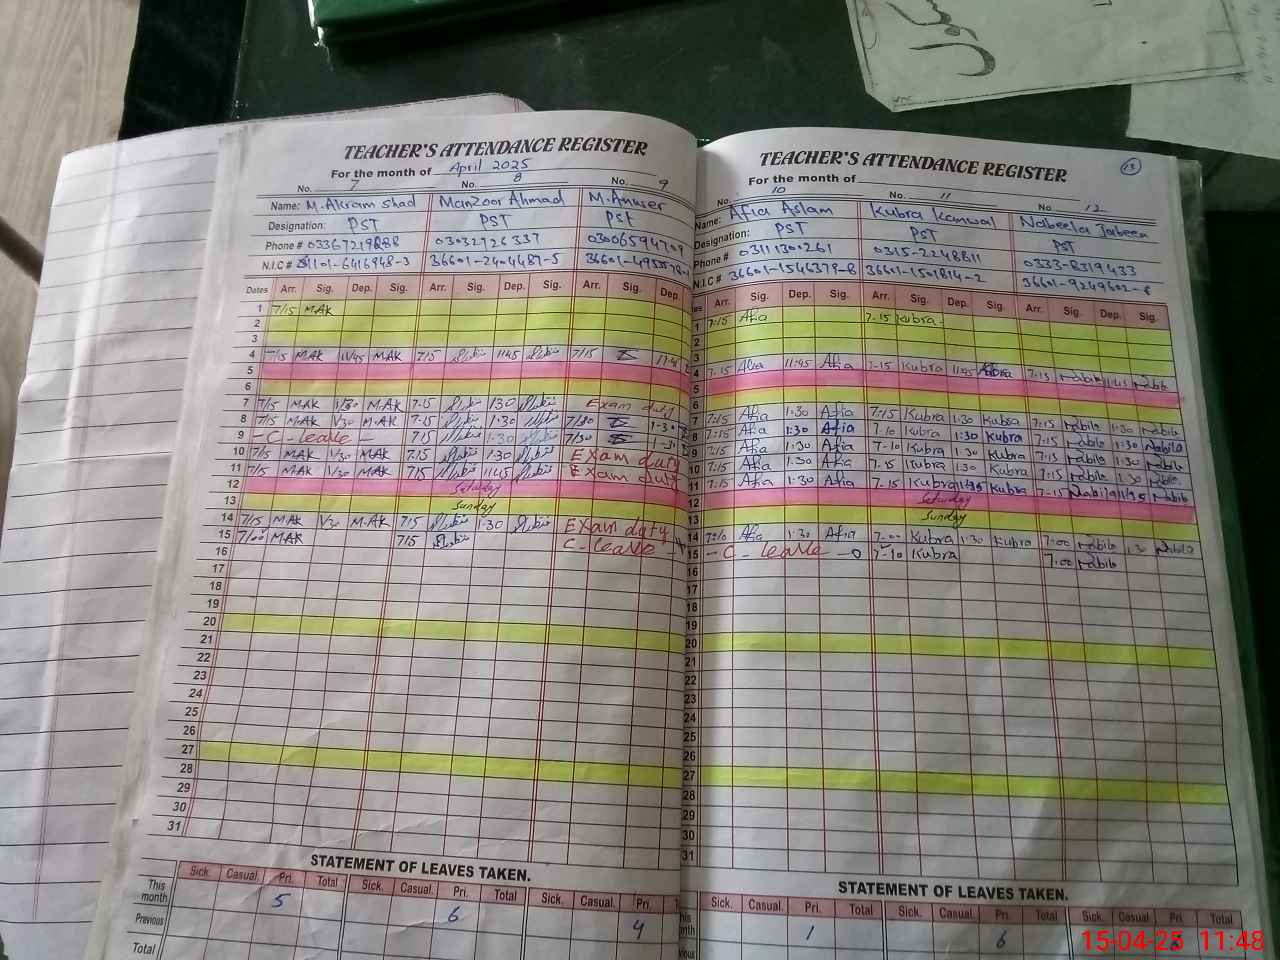 TEACHER'S ATTENDANCE REGISTER
For the month of April 2025
No. 7 No. 8 No. 9
Name: M. Akram shad Manzoor Ahmad M. Anwser
Designation: PST PST PST
Phone # 03367219288 03032726337
N.I.C # 36601-2404487-5
Dates Arr. Sig. Dep. Sig. Arr. Sig. Dep. Sig. Arr. Sig. Dep.
1 7/15 MAK
2
3
4 7/15 MAK 11/45 MAK 7/15 1145 7/15
5
6
7 7/15 MAK 1/30 MAK 7.15 1:30 Exam duty
8 7/15 MAK 1/30 MAK 7.15 1.30 7/30 1-30
9 - C - leave - 715 1:30 7/30 1-31
10 7/15 MAK 1/30 MAK 7.15 1.30 Exam duty
11 7/15 MAK 1/30 MAK 715 1145 Exam duty
12 Saturday
13 Sunday
14 7/15 MAK 1/30 MAK 7.15 1:30 Exam duty
15 7/00 MAK 7/15 C - leave
16
17
18
19
20
21
22
23
24
25
26
27
28
29
30
31
STATEMENT OF LEAVES TAKEN.
Sick. Casual. Pri. Total Sick. Casual. Pri. Total Sick. Casual. Pri.
This month 5 6 4
Previous
Total
TEACHER'S ATTENDANCE REGISTER
13
For the month of
No. 10 No. 11 No. 12
Name: Afia Aslam Kubra Kanwal Nabeela Jabeen
Designation: PST PST PST
Phone # 0311130261 0315-2248811 0333-8319433
N.I.C # 36601-1546379-8 36601-1501814-2 36601-9249602-8
Arr. Sig. Dep. Sig. Arr. Sig. Dep. Sig. Arr. Sig. Dep. Sig.
1 7:15 Afia 7.15 Kubra
2
3
4 7.15 Afia 11:45 Afia 7-15 Kubra 11:45 Kubra 7:15 Nabila 11:45 Nabila
5
6
7 7:15 Afia 1:30 Afia 7:15 Kubra 1:30 Kubra 7:15 Nabila 1:30 Nabila
8 7:15 Afia 1:30 Afia 7.10 Kubra 1:30 Kubra 7:15 Nabila 1:30 Nabila
9 7:15 Afia 1:30 Afia 7-10 Kubra 1.30 Kubra 7:15 Nabila 1:30 Nabila
10 7:15 Afia 1:30 Afia 7.15 Kubra 1:30 Kubra 7:15 Nabila 1.30 Nabila
11 7:15 Afia 1:30 Afia 7.15 Kubra 11:45 Kubra 7-15 Nabila 11:45 Nabila
12 Saturday
13 Sunday
14 Afia 1:30 Afia 7.00 Kubra 1:30 Kubra 7:00 Nabila 1:30 Nabila
15 - C - leave 7-10 Kubra 7:00 Nabila
16
17
18
19
20
21
22
23
24
25
26
27
28
29
30
31
STATEMENT OF LEAVES TAKEN.
Sick. Casual. Pri. Total Sick. Casual. Pri. Total Sick. Casual Pri. Total
1 6
15-04-25 11:48